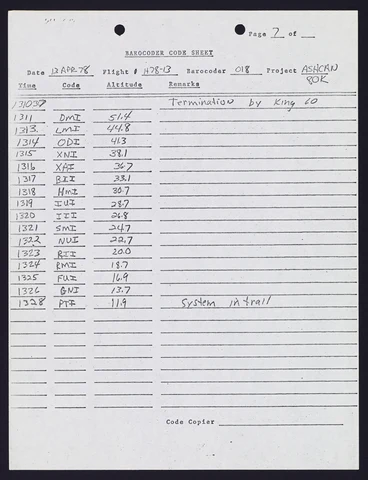 Page 7 of
BAROCODER CODE SHEET
Date 13 APR 78 Flight # H78-13 Barocoder 018 Project ASHCAN
80K
Time Code Altitude Remarks
131037 Termination by King 60
1311 DMI 51.4
1313 LMI 44.8
1314 ODI 41.3
1315 XNI 38.1
1316 XAI
1317 BII 33.1
1318 HMI 30.7
1319 IUI 28.7
1320 III 26.8
1321 SMI 24.7
1322 NUI 22.7
1323 RII 20.0
1324 RMI 18.7
1325 FUI 16.9
1326 GNI 13.7
1328 PTI 11.9 System in trail
Code Copier